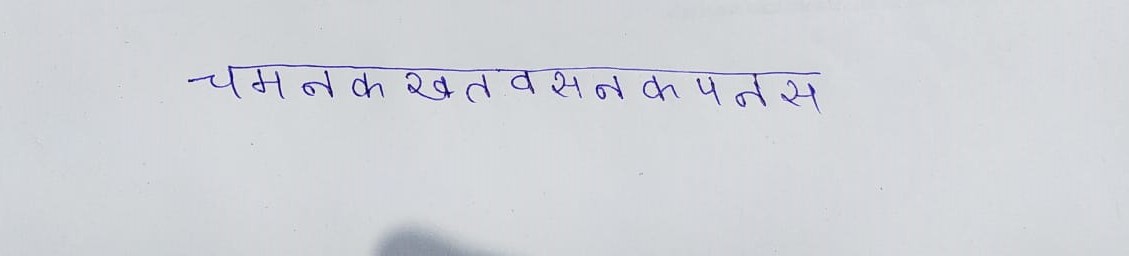 चमनकखतवसनकपनस